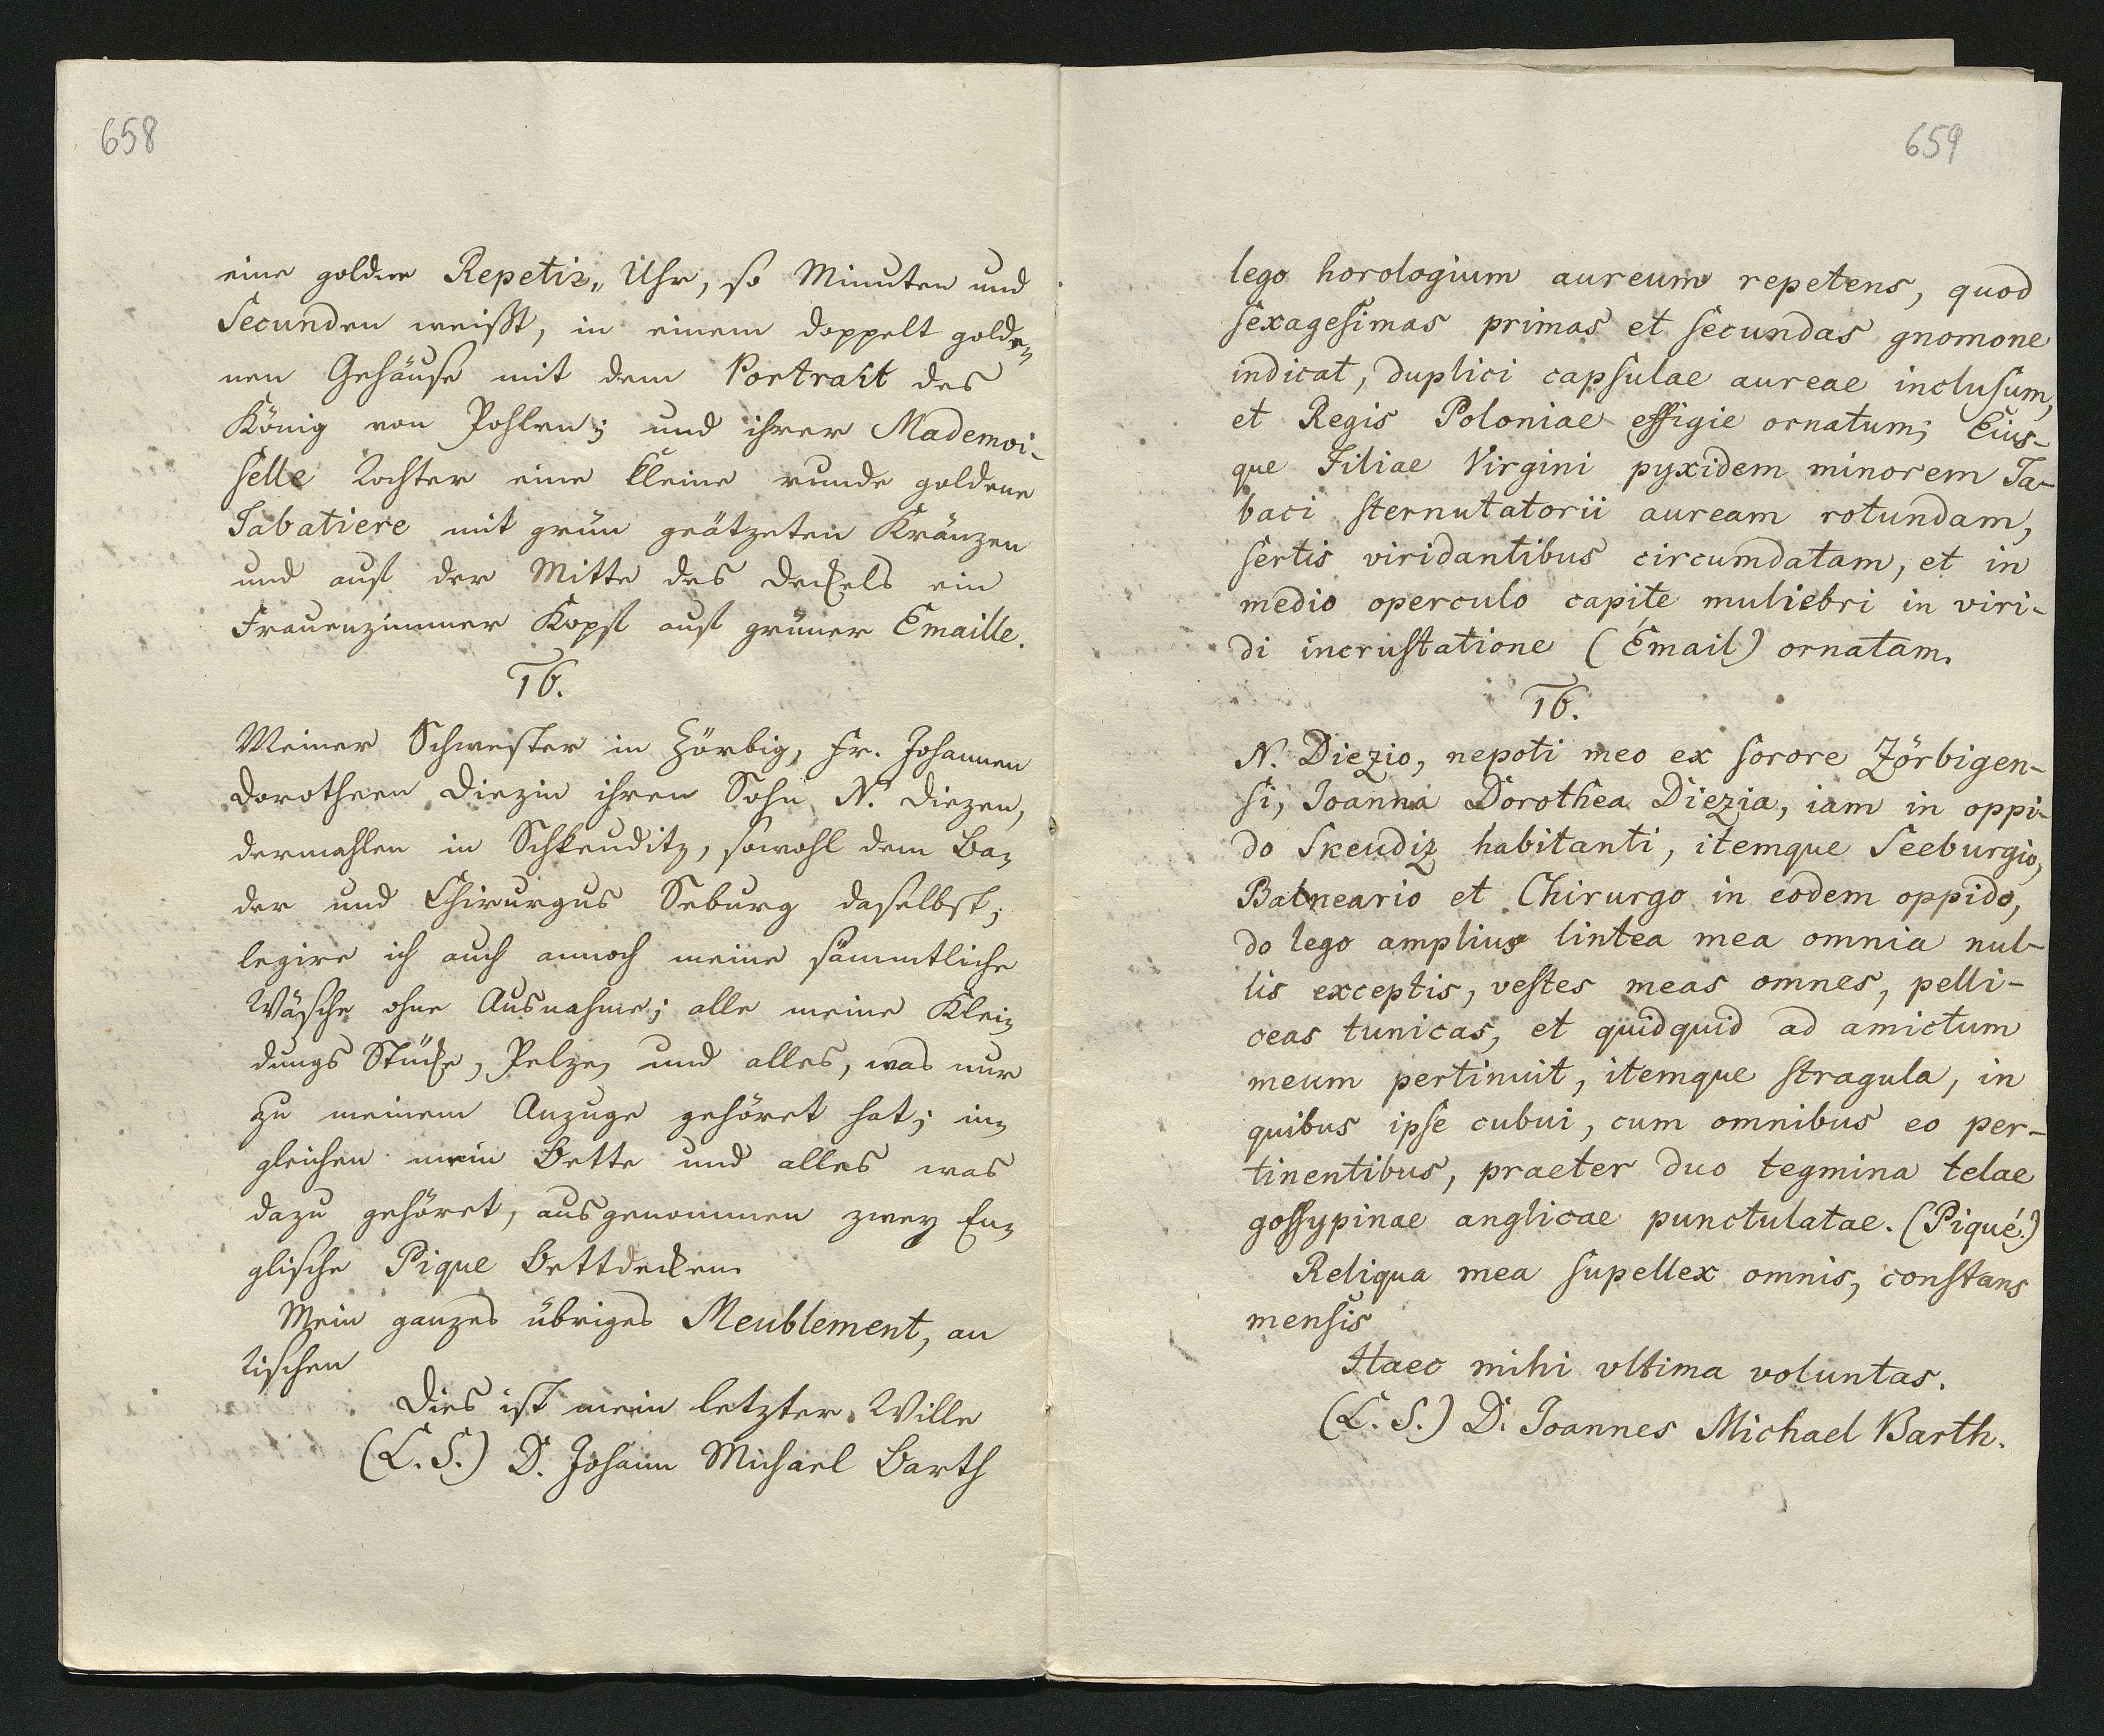 658
eine goldene Repetir„ Uhr, so Minuten und
Secunden weißt, in einem doppelt golde„
nen Gehäuse mit dem Portrait des
König von Pohlen; und ihrer Mademoi-
selle Tochter eine kleine runde goldene
Tabatiere mit grün geätzeten Kränzen
und auf der Mitte des Deckels ein
Frauenzimmer Kopf auf grüner Emaille.
16.
Meiner Schwester in Zörbig, Fr. Johannen
Dorotheen Diezin ihren Sohn N. Diezen,
dermahlen in Schkeuditz, sowohl dem Ba-
der und Chirurgus Seburg daselbst;
legire ich auch annoch meine sämmtliche
Wäsche ohne Ausnahme; alle meine Klei-
dungs Stücke, Pelze, und alles, was nur
zu meinem Anzuge gehöret hat; in-
gleichen mein Bette und alles was
dazu gehöret, ausgenommen zwey En-
glische Pique Bettdecken.
Mein ganzes übriges Meublement, an
Tischen
Dies ist mein letzter Wille
(L. S.) D. Johann Michael Barth
659
lego horologium aureum repetens, quod
sexagesimas primas et secundas gnomone
indicat, duplici capsulae aureae inclusum,
et Regis Poloniae effigie ornatum; Eius-
que Filiae Virgini pyxidem minorem Ta-
baci sternutatorii auream rotundam,
sertis viridantibus circumdatam, et in
medio operculo capite muliebri in viri-
di incrustatione (Émail) ornatam.
16.
N. Diezio, nepoti meo ex sorore Zörbigen-
si, Joanna Dorothea Diezia, iam in oppi-
do Skeudiz habitanti, itemque Seeburgio,
Balneario et Chirurgo in eodem oppido,
do lego amplius lintea mea omnia nul-
lis exceptis, vestes meas omnes, pelli-
ceas tunicas, et quidquid ad amictum
meum pertinuit, itemque stragula, in
quibus ipse cubui, cum omnibus eo per-
tinentibus, praeter duo tegmina telae
gossypinae anglicae punctulatae. (Piqué.)
Reliqua mea supellex omnis, constans
mensis
Haec mihi vltima voluntas.
(L. S.) D. Joannes Michael Barth.